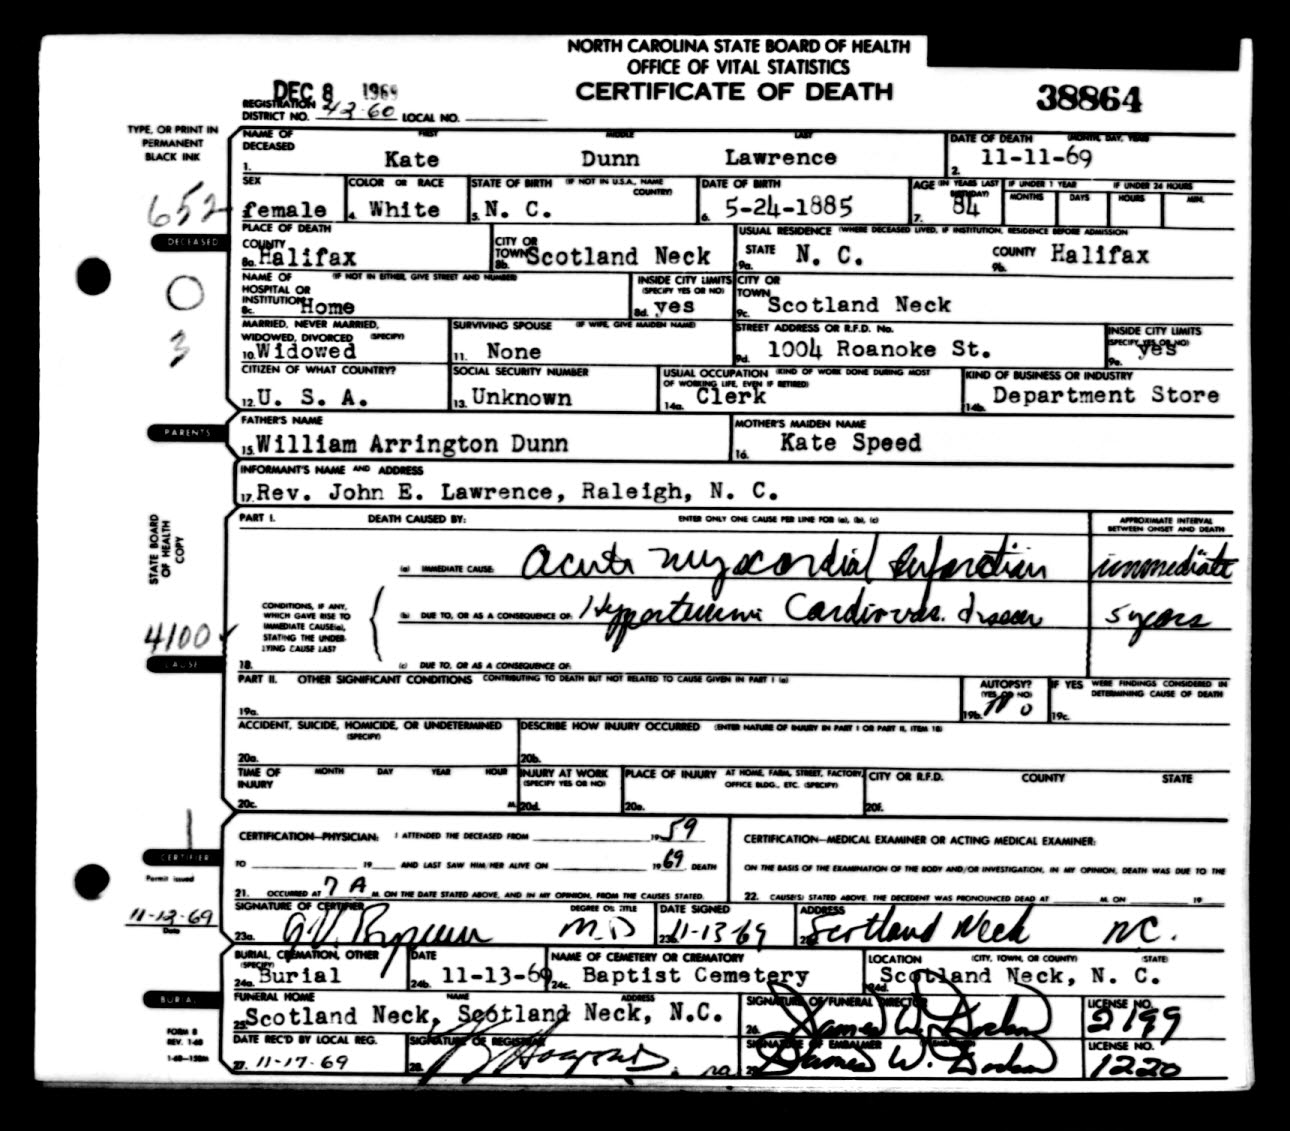 NORTH CAROLINA STATE BOARD OF HEALTH
OFFICE OF VITAL STATISTICS
CERTIFICATE OF DEATH
38864
DEC 8 1969
REGISTRATION DISTRICT NO. 42-60 LOCAL NO.
TYPE, OR PRINT IN PERMANENT BLACK INK
NAME OF DECEASED FIRST MIDDLE LAST DATE OF DEATH (MONTH, DAY, YEAR)
1. Kate Dunn Lawrence 2. 11-11-69
SEX COLOR OR RACE STATE OF BIRTH (IF NOT IN U.S.A., NAME COUNTRY) DATE OF BIRTH AGE (IN YEARS LAST BIRTHDAY) IF UNDER 1 YEAR IF UNDER 24 HOURS
MONTHS DAYS HOURS MIN.
652
female 4. White 5. N. C. 6. 5-24-1885 7. 84
DECEASED
PLACE OF DEATH USUAL RESIDENCE (WHERE DECEASED LIVED, IF INSTITUTION, RESIDENCE BEFORE ADMISSION)
COUNTY 8a. Halifax CITY OR TOWN 8b. Scotland Neck STATE 9a. N. C. COUNTY 9b. Halifax
0
NAME OF HOSPITAL OR INSTITUTION (IF NOT IN EITHER, GIVE STREET AND NUMBER) 8c. Home INSIDE CITY LIMITS (SPECIFY YES OR NO) 8d. yes CITY OR TOWN 9c. Scotland Neck
3
MARRIED, NEVER MARRIED, WIDOWED, DIVORCED (SPECIFY) 10. Widowed SURVIVING SPOUSE (IF WIFE, GIVE MAIDEN NAME) 11. None STREET ADDRESS OR R.F.D. No. 9d. 1004 Roanoke St. INSIDE CITY LIMITS (SPECIFY YES OR NO) 9e. yes
CITIZEN OF WHAT COUNTRY? 12. U. S. A. SOCIAL SECURITY NUMBER 13. Unknown USUAL OCCUPATION (KIND OF WORK DONE DURING MOST OF WORKING LIFE, EVEN IF RETIRED) 14a. Clerk KIND OF BUSINESS OR INDUSTRY 14b. Department Store
PARENTS
FATHER'S NAME 15. William Arrington Dunn MOTHER'S MAIDEN NAME 16. Kate Speed
INFORMANT'S NAME AND ADDRESS
17. Rev. John E. Lawrence, Raleigh, N. C.
STATE BOARD OF HEALTH COPY
PART I. DEATH CAUSED BY: ENTER ONLY ONE CAUSE PER LINE FOR (a), (b), (c) APPROXIMATE INTERVAL BETWEEN ONSET AND DEATH
(a) IMMEDIATE CAUSE: Acute Myocardial Infarction immediate
CONDITIONS, IF ANY, WHICH GAVE RISE TO IMMEDIATE CAUSE(a), STATING THE UNDERLYING CAUSE LAST
(b) DUE TO, OR AS A CONSEQUENCE OF: Hypertensive Cardiovas. disease 5 years
4100
CAUSE
18. (c) DUE TO, OR AS A CONSEQUENCE OF:
PART II. OTHER SIGNIFICANT CONDITIONS CONTRIBUTING TO DEATH BUT NOT RELATED TO CAUSE GIVEN IN PART I (a) AUTOPSY? (YES OR NO) IF YES WERE FINDINGS CONSIDERED IN DETERMINING CAUSE OF DEATH
19a. 19b. No 19c.
ACCIDENT, SUICIDE, HOMICIDE, OR UNDETERMINED (SPECIFY) DESCRIBE HOW INJURY OCCURRED (ENTER NATURE OF INJURY IN PART I OR PART II, ITEM 18)
20a. 20b.
TIME OF INJURY MONTH DAY YEAR HOUR INJURY AT WORK (SPECIFY YES OR NO) PLACE OF INJURY AT HOME, FARM, STREET, FACTORY, OFFICE BLDG., ETC. (SPECIFY) CITY OR R.F.D. COUNTY STATE
20c. M. 20d. 20e. 20f.
1
CERTIFIER
CERTIFICATION—PHYSICIAN: I ATTENDED THE DECEASED FROM 1959 CERTIFICATION—MEDICAL EXAMINER OR ACTING MEDICAL EXAMINER:
TO 19 AND LAST SAW HIM/HER ALIVE ON 1969 DEATH ON THE BASIS OF THE EXAMINATION OF THE BODY AND/OR INVESTIGATION, IN MY OPINION, DEATH WAS DUE TO THE
21. OCCURRED AT 7 A M. ON THE DATE STATED ABOVE, AND IN MY OPINION, FROM THE CAUSES STATED. 22. CAUSE(S) STATED ABOVE. THE DECEDENT WAS PRONOUNCED DEAD AT M. ON 19
Permit issued
11-13-69
Date
SIGNATURE OF CERTIFIER DEGREE OR TITLE DATE SIGNED ADDRESS
23a. M.D 23b. 11-13-69 Scotland Neck N.C.
BURIAL, CREMATION, OTHER (SPECIFY) DATE NAME OF CEMETERY OR CREMATORY LOCATION (CITY, TOWN, OR COUNTY) (STATE)
24a. Burial 24b. 11-13-69 24c. Baptist Cemetery 24d. Scotland Neck, N. C.
BURIAL
FUNERAL HOME NAME ADDRESS SIGNATURE OF FUNERAL DIRECTOR LICENSE NO.
25. Scotland Neck, Scotland Neck, N.C. 26. James W. 2199
FORM 8
REV. 1-68
1-68—150M
DATE REC'D BY LOCAL REG. SIGNATURE OF REGISTRAR SIGNATURE OF EMBALMER LICENSE NO.
27. 11-17-69 28. 29. James W. 1220